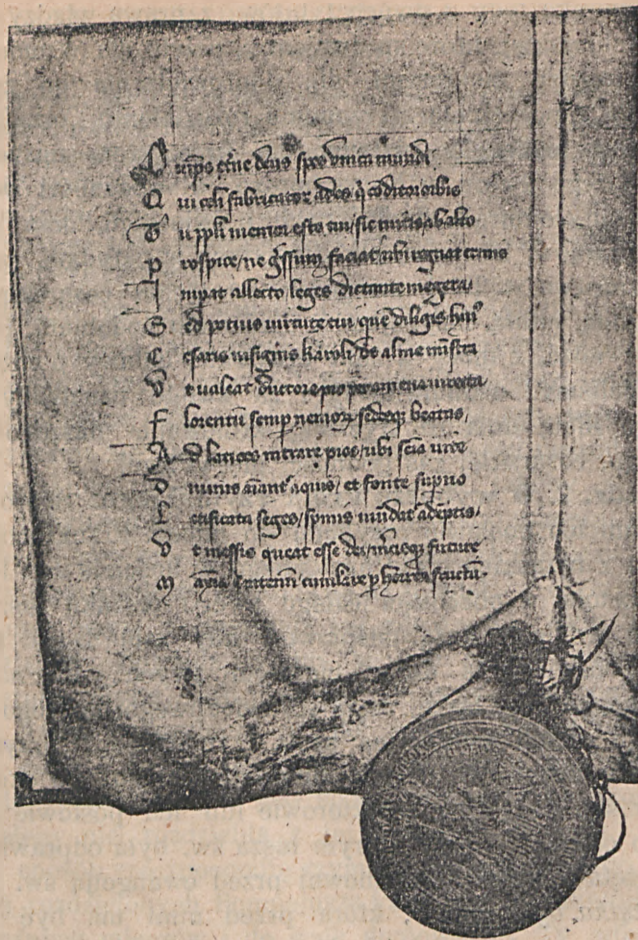 O mnipo͞s et͞ne deus spes vnica mundi
Q ui celi fabricator ades q͛ co͞ditor orbis
T u pp̄li memor esto tui/ sic mitis ab alto
P rospice/ ne g͛ssum faciat/ ubi regnat erinis
I mp̄at allecto leges dictante megera/
S ed potius uirtute tui que͞ diligis hui9
C esaris insignis karoli/ ds̄ alme mi͞stra
V t ualeat ductore pio per amena uireta
F lorentu͞ semp̄ nemor͛ sedesq̄ beatas/
A d latices intrare pios/ ubi sēia uite
D iuinis āiant͛ aquis/ et fonte sup̄no
L etificata seges/ spinis mu͞dat͛ ademptis/
V t messis queat esse dei/ m͛cisq̄ future
M axi͞a centenu͞ cumulare p̄ horrea fructu͞